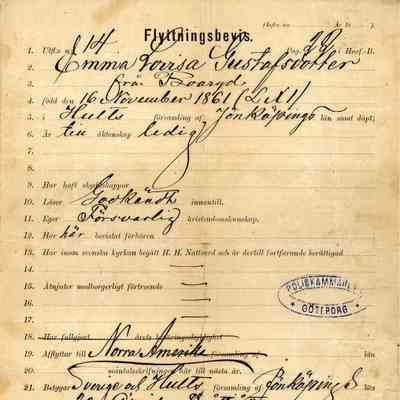 Flyttningsbevis.
1. Utfl. n:o 14 Pag. 22 i Husf.-B.
2. Emma Lovisa Gustafsdotter
3. från
4. född den 16 November 1861
5. i Hults församling af Jönköpings län samt döpt;
6. Är till äktenskap ledig
7.
8.
9. Har haft skyddskoppor
10. Läser Godkändt innantill.
11. Eger Försvarlig kristendomskunskap.
12. Har här bevistat förhören
13. Har inom svenska kyrkan begått H. H. Nattvard och är dertill fortfarande berättigad
14.
15. Åtnjuter medborgerligt förtroende
16.
17.
18. Har fullgjort årets
19. Afflyttar till Norra Amerika församling af län
20. mantalsskrifningen här till nästa år.
21. Betygar Sverige och Hults församling af Jönköpings län
POLISKAMMAREN
* GÖTEBORG *